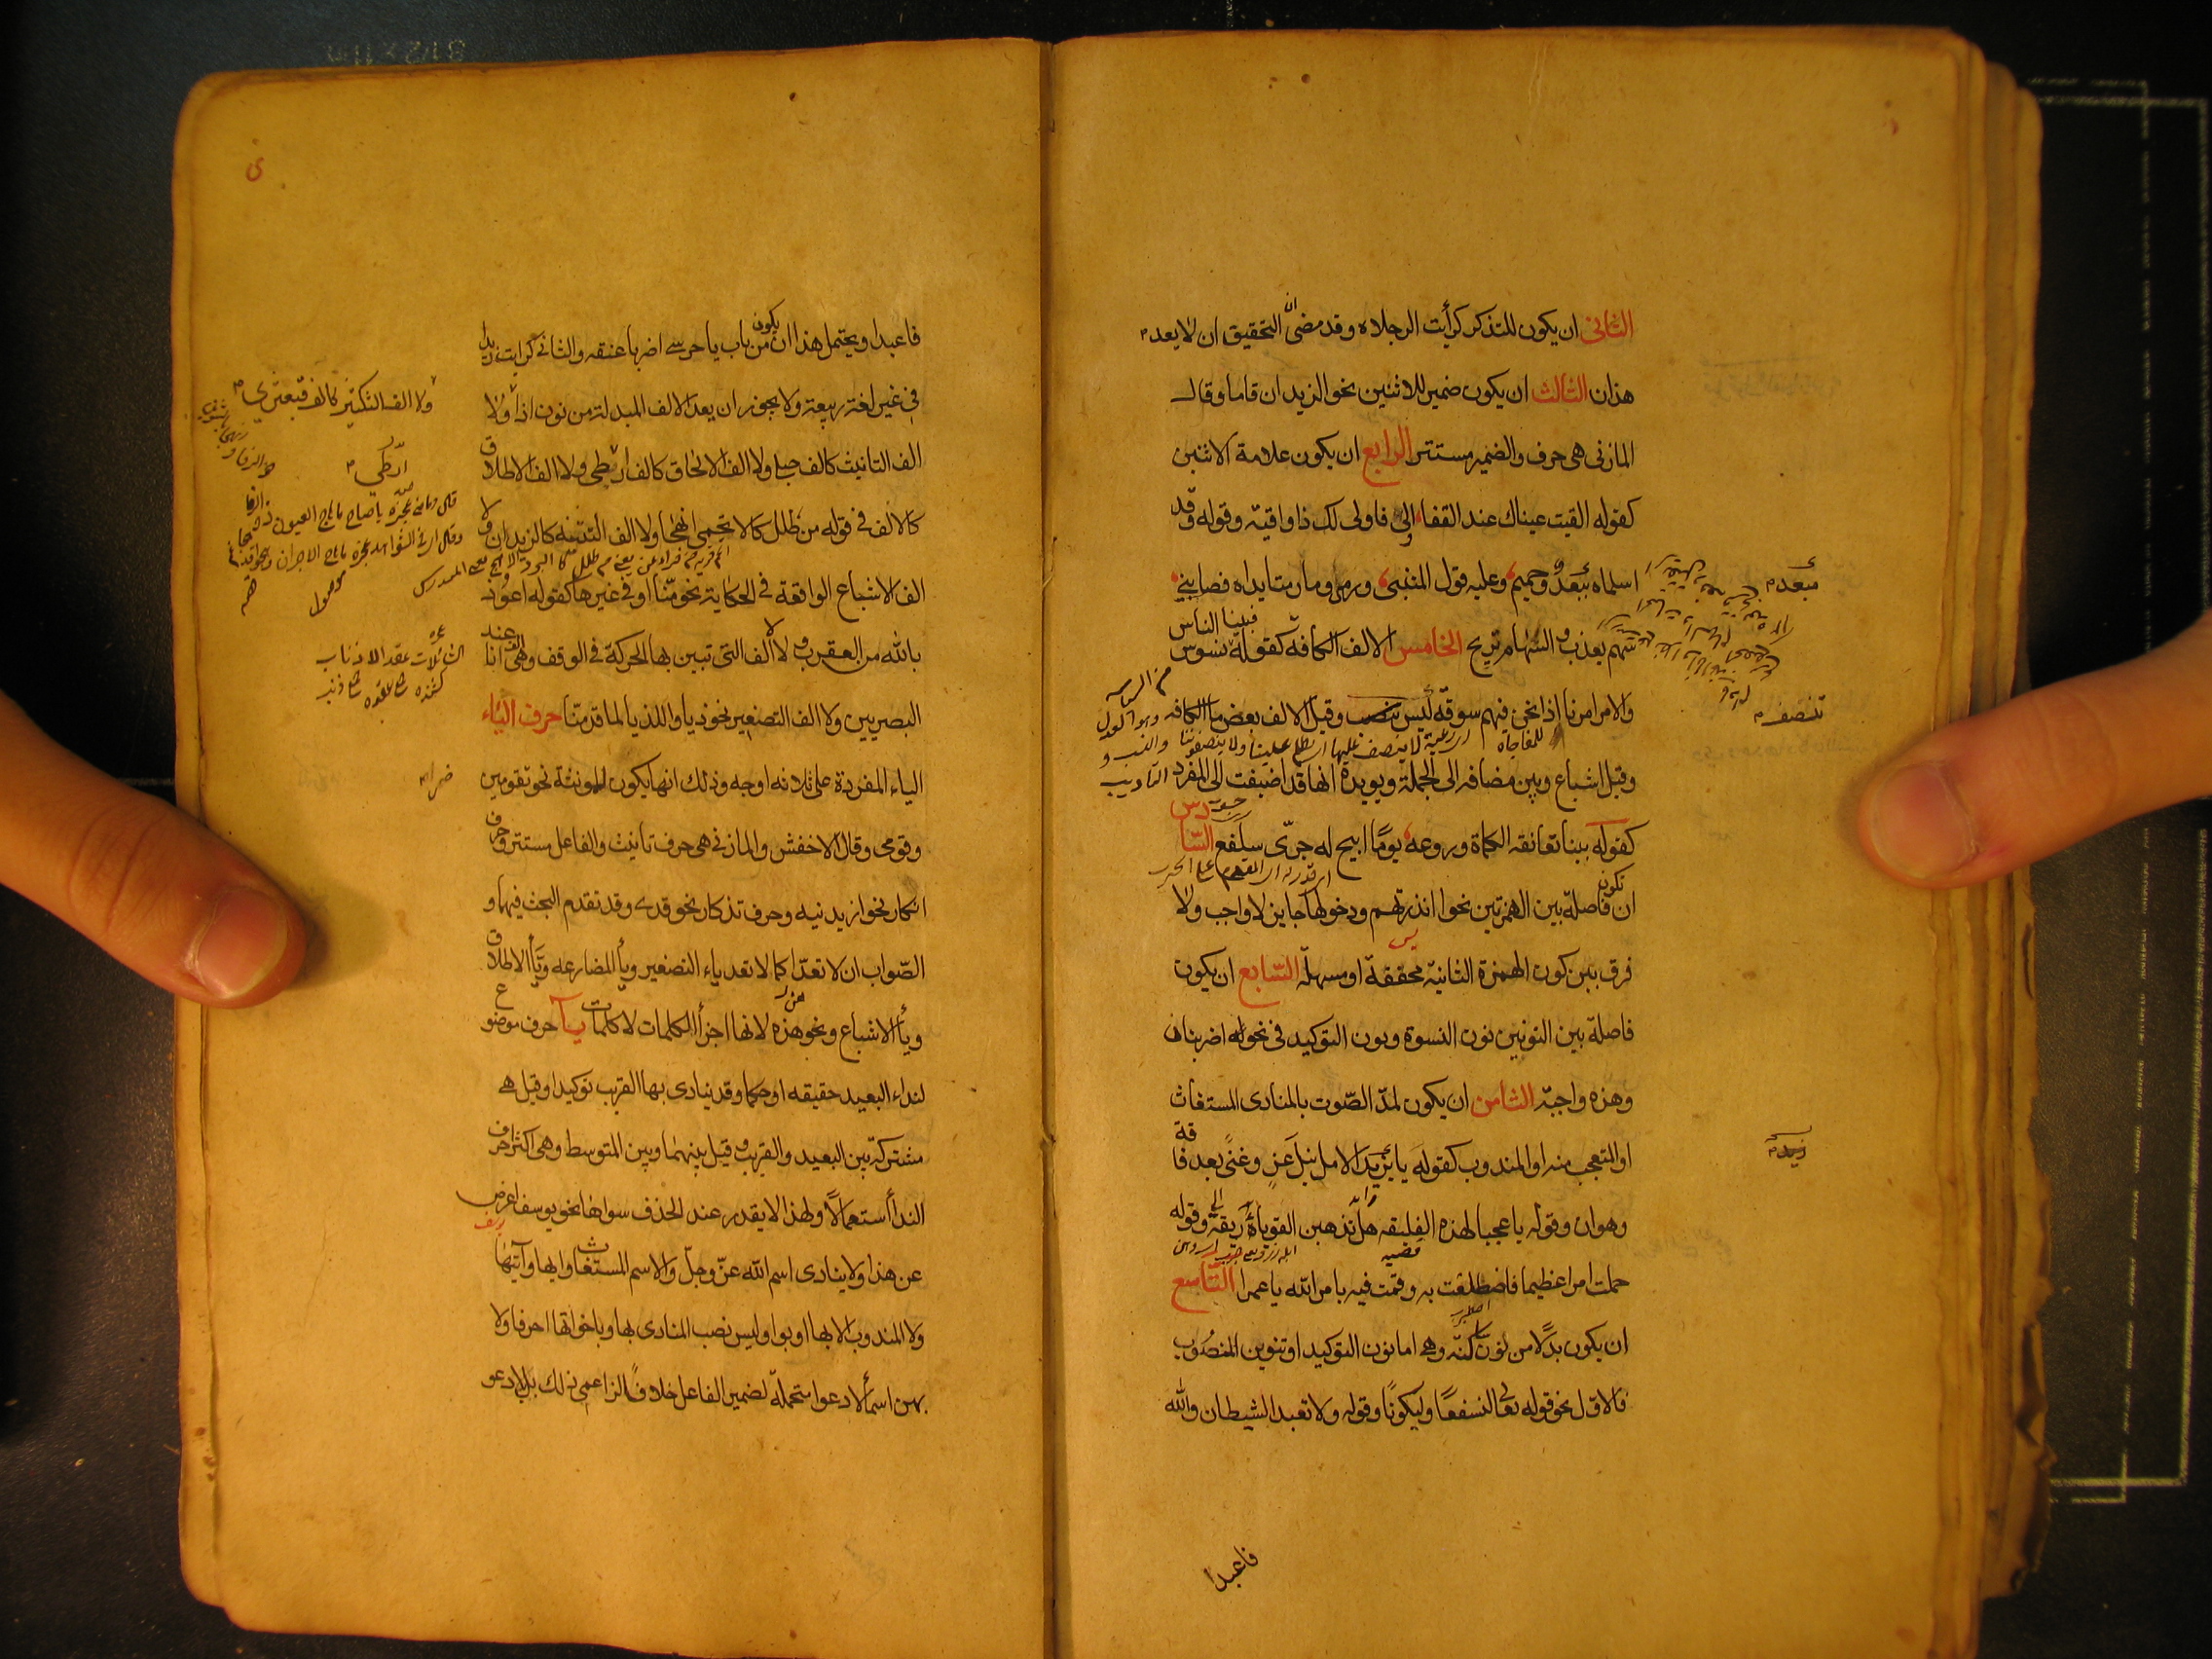 الثانی ان یکون للتذکر کرأیت الرجلاه وقد مضی ان التحقیق ان لا یعد
هذان الثالث ان یکون ضمیر للاثنین نحو الزیدان قاما وقال
المازنی هی حرف والضمیر مستتر الرابع ان یکون علامة الاثنین
کقوله القیت عیناک عند القفا اولی فاولی لک ذا واقیة وقوله وقد
اسلماه مبعد وحمیم وعلیه قول المتنبی ورمی وما رمتا یداه فصابنی
سهم یعذب والسهام تریح الخامس الالف الکافة کقوله فبینا الناس نسوس
والامر امرنا اذا نحن فیهم سوقة لیس ننصف وقیل الالف بعض ما الکافه
وقیل اشباع وبین مضافه الی الجملة ویویده انها قد اضیفت الی المفرد
کقوله بینا تعانقه الکماة وروعه یوما ابیح له جرّی سلفع السادس
ان تکون فاصلة بین الهمزتین نحو اانذرتهم ودخولها جایز لا واجب ولا
فرق بین کون الهمزة الثانیة محققة او مسهلة السابع ان یکون
فاصلة بین النونین نون النسوة ونون التوکید فی نحو اضربنان
وهذه واجبة الثامن ان یکون لمدّ الصّوت بالمنادی المستغاث
او المتعجب منه او المندوب کقوله یا یزیدا لامل نیل عز وغنی بعد فاقة
وهوان وقوله یا عجبا لهذه الفلیقه هل تذهبن القوباء الریقة وقوله
حملت امرا عظیما فاضطلعت به وقمت فیه بامر الله یا عمرا التاسع
ان یکون بدلا من نون ساکنه وهی اما نون التوکید او تنوین المنصوب
فالاول نحو قوله تعالی لنسفعا ولیکونا وقوله ولا تعبد الشیطان والله
فاعبدا
فاعبدا ویحتمل هذا ان یکون من باب یا حرسی اضربا عنقه والثانی کرایت زیدا
فی غیر لغة ربیعة ولا یجوز ان یعد الالف المبدلة من نون اذا ولا
الف التانیث کالف حبلی ولا الف الالحاق کالف ارطی ولا الف الاطلاق
کالالف فی قوله من طلل کالاتحمی انهجا ولا الف التثنیه کالزیدان ولا
الف الاشباع الواقعة فی الحکایة نحو منّا او فی غیرها کقوله اعوذ
بالله من العقراب ولا الالف التی تبین بها الحرکة فی الوقف وهی الف انا عند
البصریین ولا الف التصغیر نحو ذیا واللذیا لما قدمنا حرف الیاء
الیاء المفردة علی ثلاثه اوجه وذلک انها یکون للمونثة نحو تقومین
وقومی وقال الاخفش والمازنی هی حرف تانیث والفاعل مستتر وحرف
انکار نحو ازیدنیه وحرف تذکار نحو قدی وقد تقدم البحث فیها و
الصّواب ان لا تعدّا کما لا تعد یاء التصغیر ویاء المضارعه ویاء الاطلاق
ویاء الاشباع ونحوهنّ لانها اجزأ الکلمات لا کلمات یا حرف موضوع
لنداء البعید حقیقه او حکما وقد ینادی بها القریب توکیدا وقیل هی
مشترکة بین البعید والقریب وقیل بینهما وبین المتوسط وهی اکثر احرف
الندأ استعمالا ولهذا لا یقدر عند الحذف سواها نحو یوسف اعرض
عن هذا ولا ینادی اسم الله عزّ وجلّ والاسم المستغاث وایها وایتها
ولا المندوب الا بها او بوا ولیس نصب المنادی بها وباخواتها احرفا ولا
بهن اسمأ لادعوا متحملة لضمیر الفاعل خلافا لزاعمی ذلک بل بادعو
ولا الف التکثیر کالف قبعثری